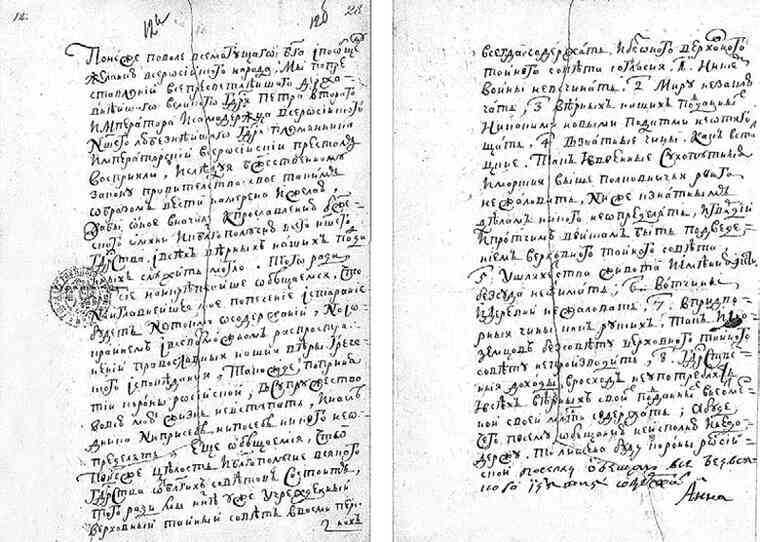 14.
12и
12б
28
Понеже поволе всемогущаго бга ипообще
желанию всеросиского народа, Мы попре
ставлении всепресветлейшаго держа
внейшаго великого гдря Петра втораго
Императора Исамодержца всеросийского
Ншего любезнейшаго гдря племянника
императорский всеросиский престолъ
восприяли, Иследуя бжественному
закону правителство свое такимъ
образомъ вести намерена ижелаю,
дабы, оное вначале кпрославлению бже
ского имяни Икблагополучию всего ншего
гдрства, ивсехъ верныхъ нашихъ подда
ныхъ служить могло. Того ради
сие наикрепчайше обещаемся, что
Наиглавнейшее мое попечение истарание
будетъ нетокмо осодержании, Ноио
крайнемъ ивсевозможномъ распростра
нении православныя нашия веры грече
ского исповедания, Такожде, поприня
тии короны росийской, Всупружество
вовсю мою жизнь невступать, Инасле
дника Ниприсебе нипосебе никого нео
пределять. Еще обещаемся, что
понеже целость Иблагополучие всякого
гдрства отблагихъ советовъ состоитъ,
того ради мы ныне уже учрежденный
верховный тайный советъ ввосми пер
сонахъ
всегда содержать, Ибезоного верховного
тайного совета согласия. 1. Нискемъ
воины невсчинать. 2 Миру незаклю
чать, 3 верныхъ нашихъ подданныхъ
Никакими новыми податми неотяго
щать. 4 Взнатные чины. Какъ вста
цкие. Такъ Ивоенные сухопутныя
Иморския выше полковничья ранга
не жаловать, Ниже кзнатнымъ
деламъ никого неопределять, Игвардии
Ипротчимъ войскамъ быть подведе
ниемъ верховного тайного совета,
5 Ушляхетства живота Иимения
безсуда неотимать; 6 Вотчины
Идеревни нежаловать, 7 впридво
рныя чины какъ рускихъ. Такъ Ино
земцовъ безсовету верховного тайного
совету непроизводить, 8. гдрстве
ныя доходы врасходъ неупотреблять
Ивсехъ верныхъ своихъ подданныхъ внеоме
нной своей млсти содержать, Абуде
чего посему обещанию неисполню Инедо
держу. То лишена буду короны росии
ской посему обещаю все безвся
каго изятия содержать
Анна